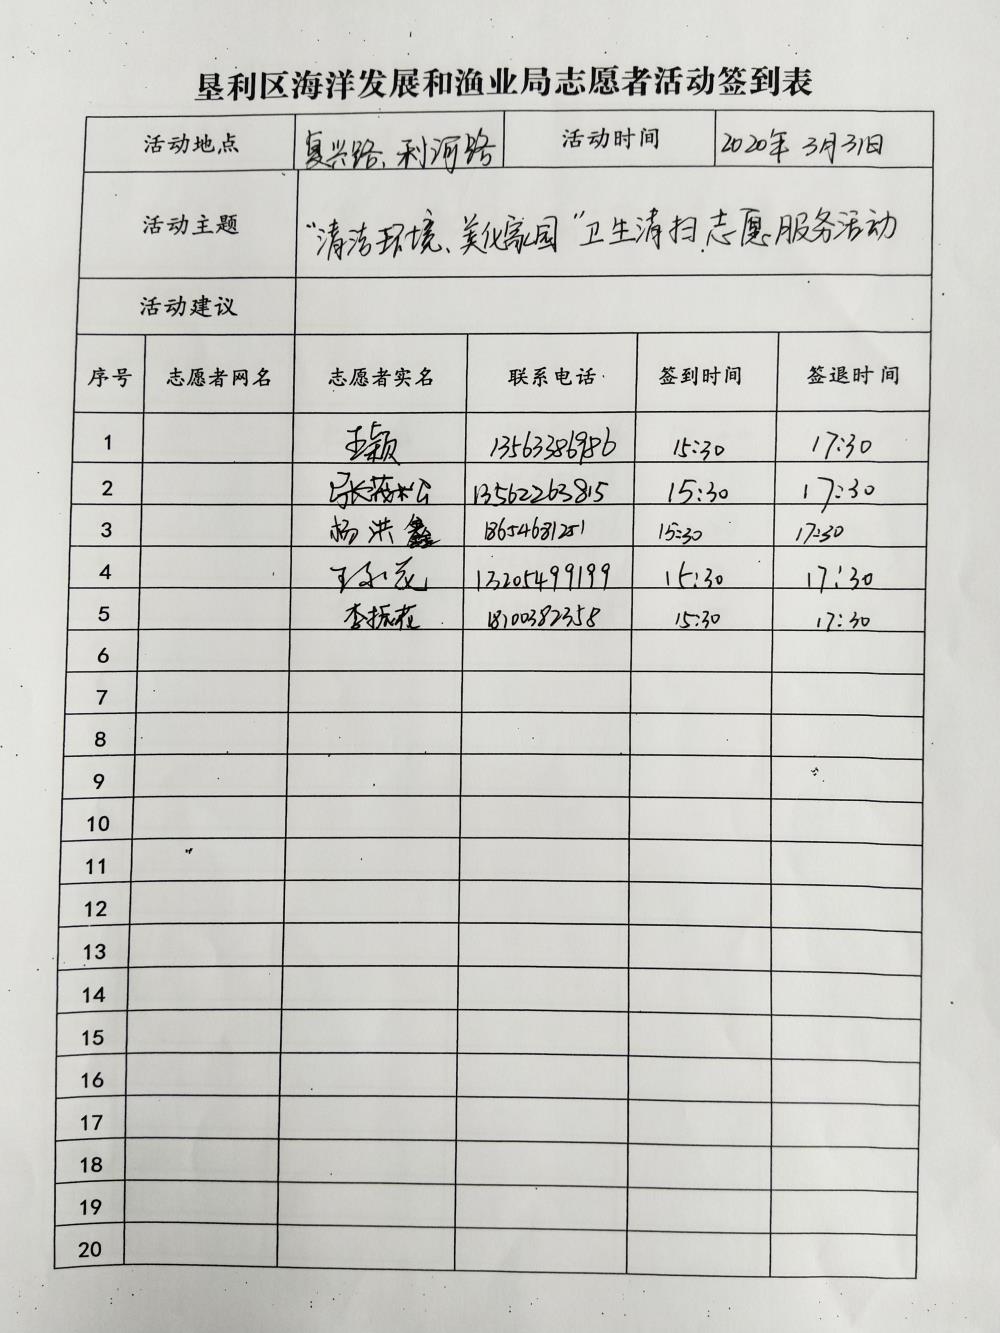 垦利区海洋发展和渔业局志愿者活动签到表
活动地点 复兴路、利河路 活动时间 2020年3月31日
活动主题 “清洁环境、美化家园”卫生清扫志愿服务活动
活动建议
序号 志愿者网名 志愿者实名 联系电话 签到时间 签退时间
1 王颖 13563386986 15:30 17:30
2 张茂松 13562263815 15:30 17:30
3 杨洪鑫 18654681251 15:30 17:30
4 13205499199 15:30 17:30
5 李振花 18100382358 15:30 17:30
6
7
8
9
10
11
12
13
14
15
16
17
18
19
20